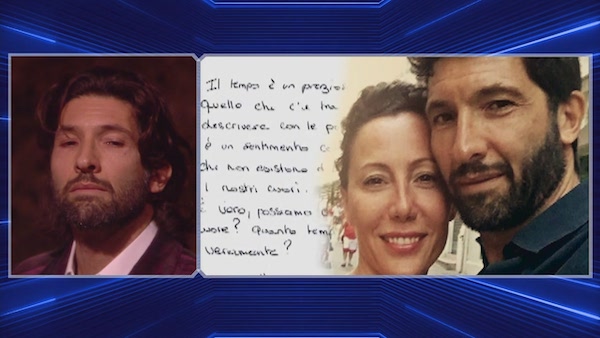 Il tempo è un prezio
Quello che c'è tra
descrivere con le p
è un sentimento c
che non esistono d
I nostri cuori.
È vero, possiamo d
uore? Quanto tem
veramente?